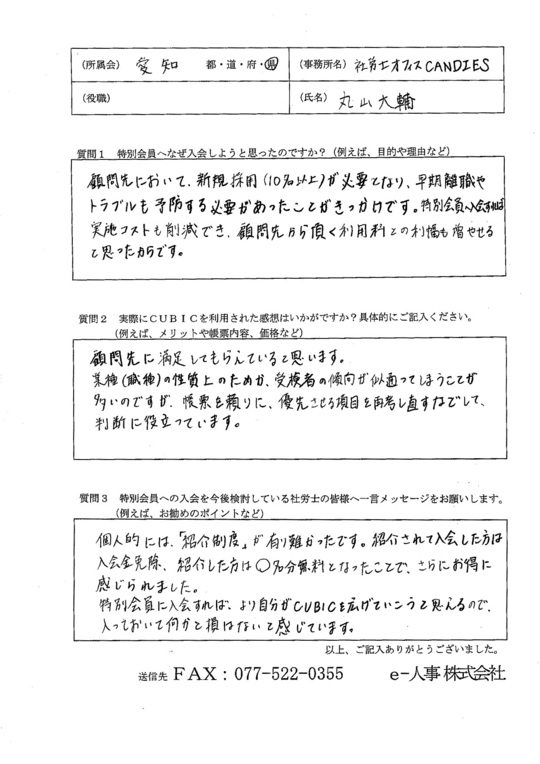 (所属会) 愛知 都・道・府・県 (事務所名) 社労士オフィスCANDIES
(役職) (氏名) 丸山大輔
質問1 特別会員へなぜ入会しようと思ったのですか?(例えば、目的や理由など)
顧問先において、新規採用(10名以上)が必要となり、早期離職や
トラブルも予防する必要があったことがきっかけです。特別会員へ入会すれば
実施コストも削減でき、顧問先から頂く利用料との利幅も増やせる
と思ったからです。
質問2 実際にCUBICを利用された感想はいかがですか?具体的にご記入ください。
(例えば、メリットや帳票内容、価格など)
顧問先に満足してもらえていると思います。
業種(職種)の性質上のためか、受検者の傾向が似通ってしまうことが
多いのですが、帳票を頼りに、優先させる項目を再考し直すなどして、
判断に役立っています。
質問3 特別会員への入会を今後検討している社労士の皆様へ一言メッセージをお願いします。
(例えば、お勧めのポイントなど)
個人的には、「紹介制度」が有り難かったです。紹介されて入会した方は
入会金免除、紹介した方は〇名分無料となったことで、さらにお得に
感じられました。
特別会員に入会すれば、より自分がCUBICを広げていこうと思えるので、
入っておいて何かと損はないと感じています。
以上、ご記入ありがとうございました。
送信先 FAX:077-522-0355 e-人事株式会社